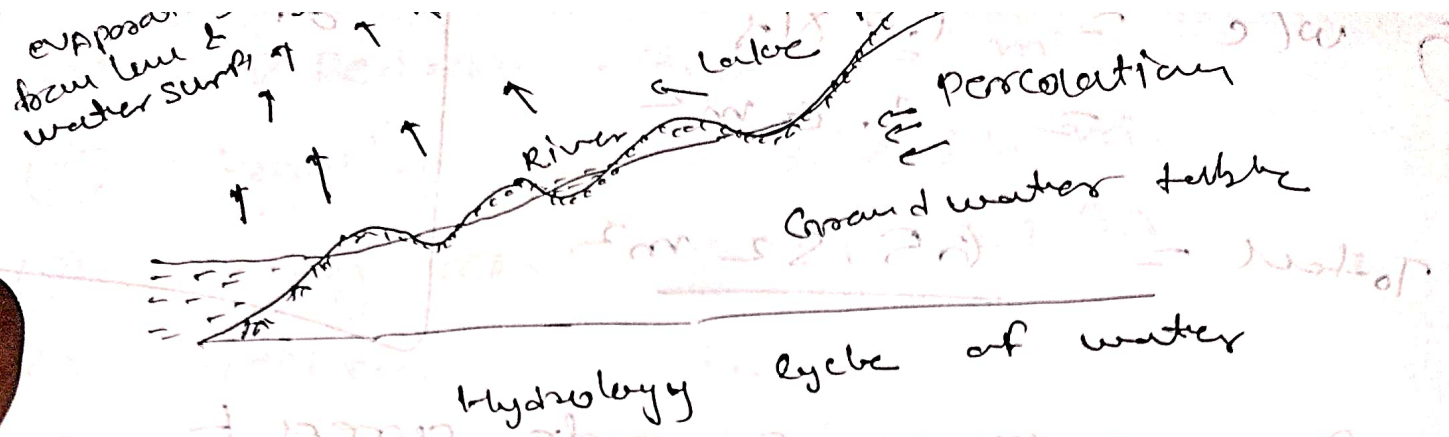 evaporation
from leve &
water surf,
Lake
Percolation
River
Ground water table
Hydrology cycle of water